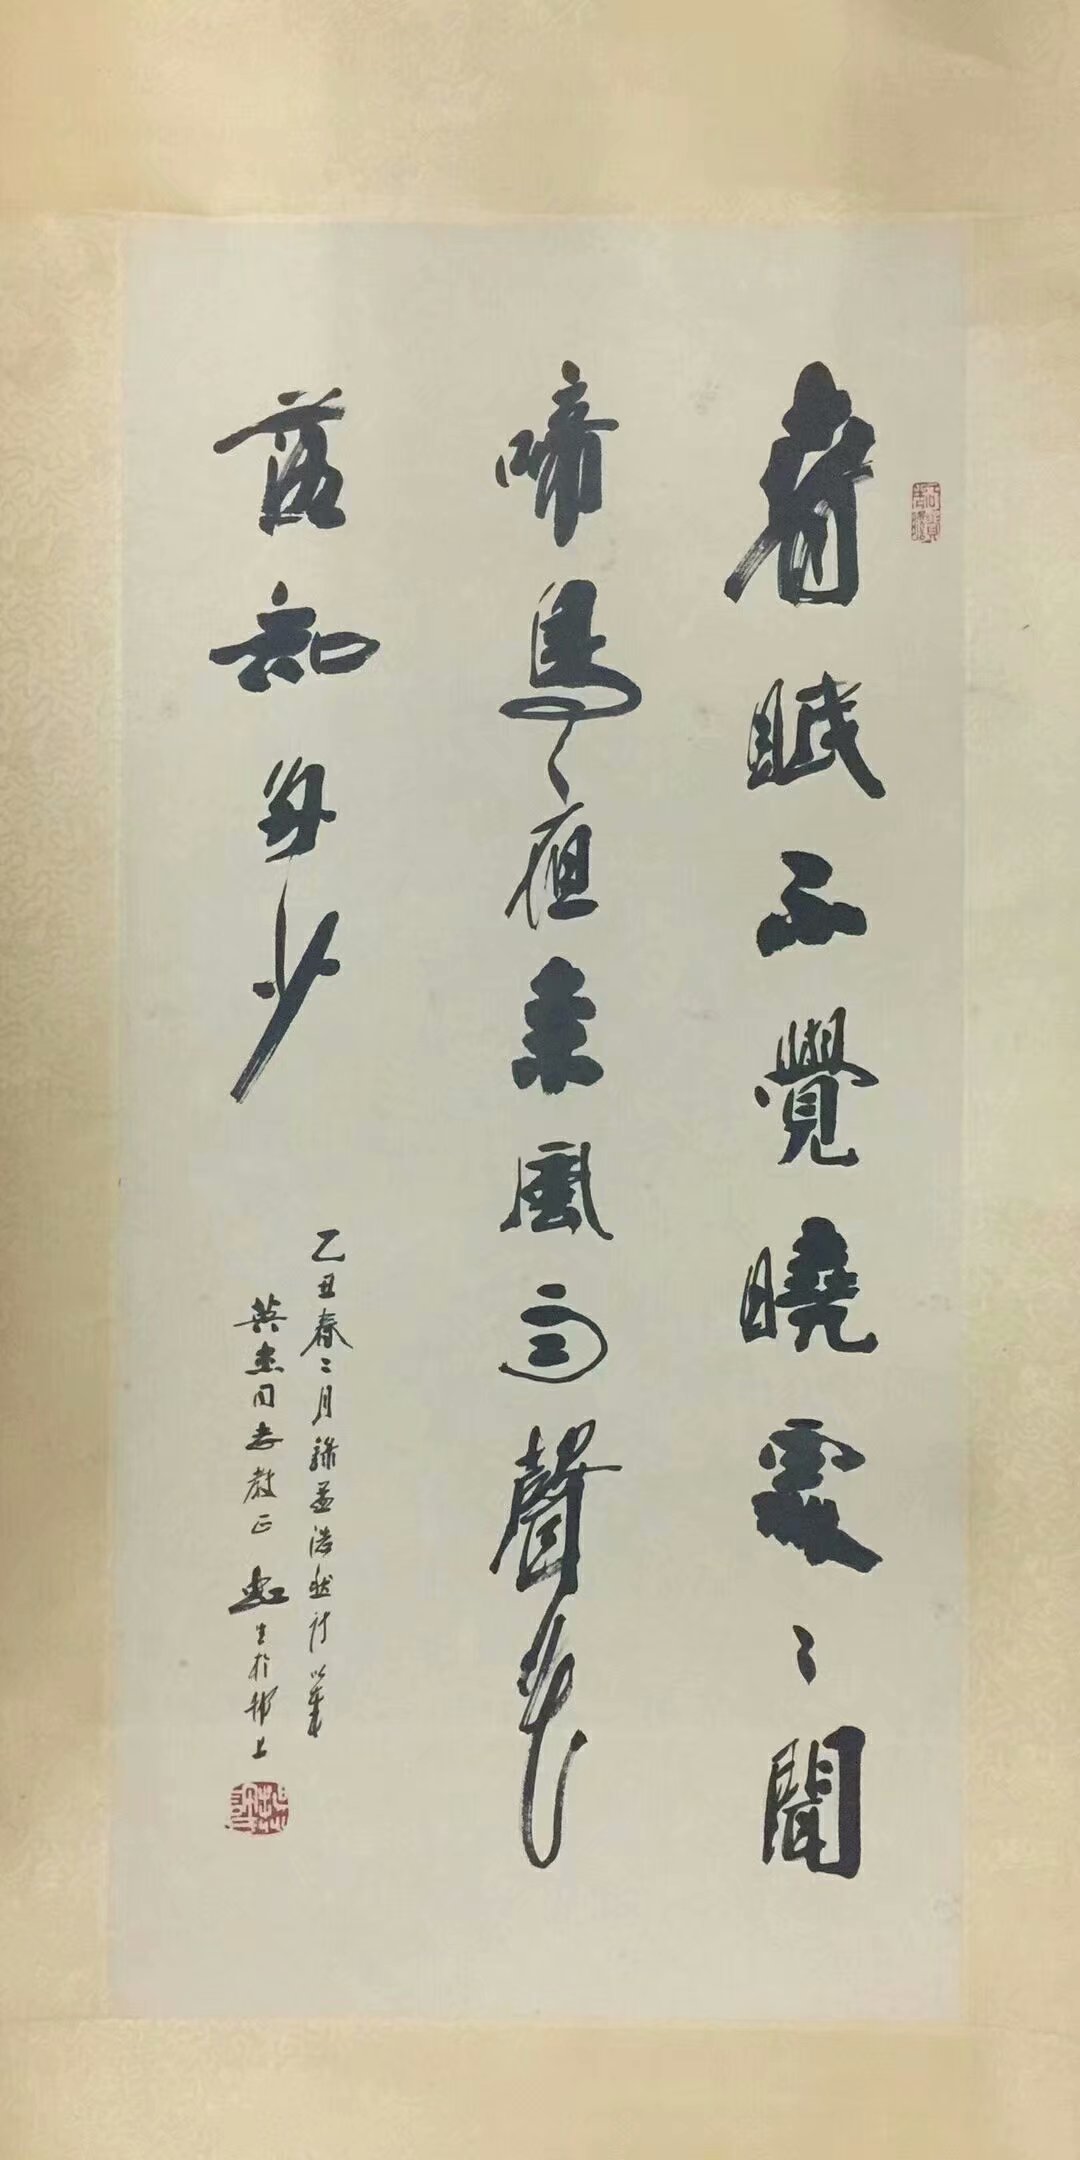 春眠不覺曉處〻聞
啼鳥夜來風雨聲花
落知多少
乙丑春二月錄孟浩然詩以奉
英杰同志教正 虹生於邗上